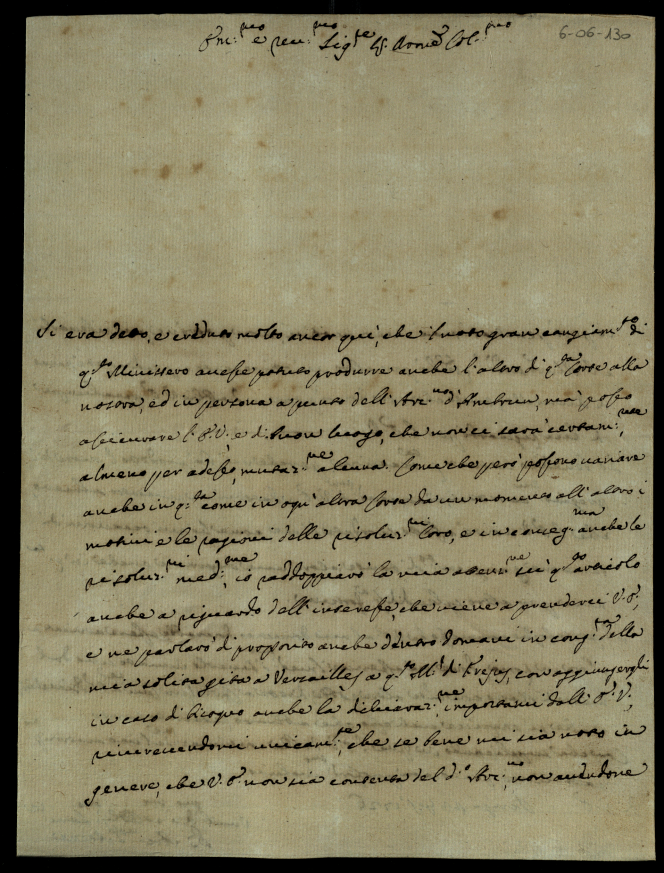 6-06-130
Em:mo e reu:mo Sig:re Pne Col:mo
Si era detto, e creduto molto ancor qui, che l'uoto gran cangiam:to di
q:to Ministero auesse potuto produrre anche l'altro di q:ta Corte alla
nostra, ed in persona apunto dell'Arc:uo d'Ambrun, mà posso
assicurare l'E.V., e di buon luogo, che non ci sarà certam:te
almeno per adesso, mutaz:ne alcuna. Come che però possono uariare
anche in q:ta come in ogn'altra Corte da un momento all'altro i
motiui e le ragioni delle risoluz:ni loro, e in conseg:nza anche le
risoluz:ni med:me, io raddoppiarò la mia attenz:ne sù q:to articolo
anche a riguardo dell'interesse, che uiene a prenderci V.E.,
e ne parlarò di proposito anche dentro domani in cong:ra della
mia solita gita a Versailles a q:to M:r di Frejus, con aggiungergli
in caso di bisogno anche la dichiaraz:ne importami dall'E.V.,
rincrescendomi unicam:te, che se bene mi sia noto in
genere, che V.E. non sia contenta del d:o Arc:uo, non auendone